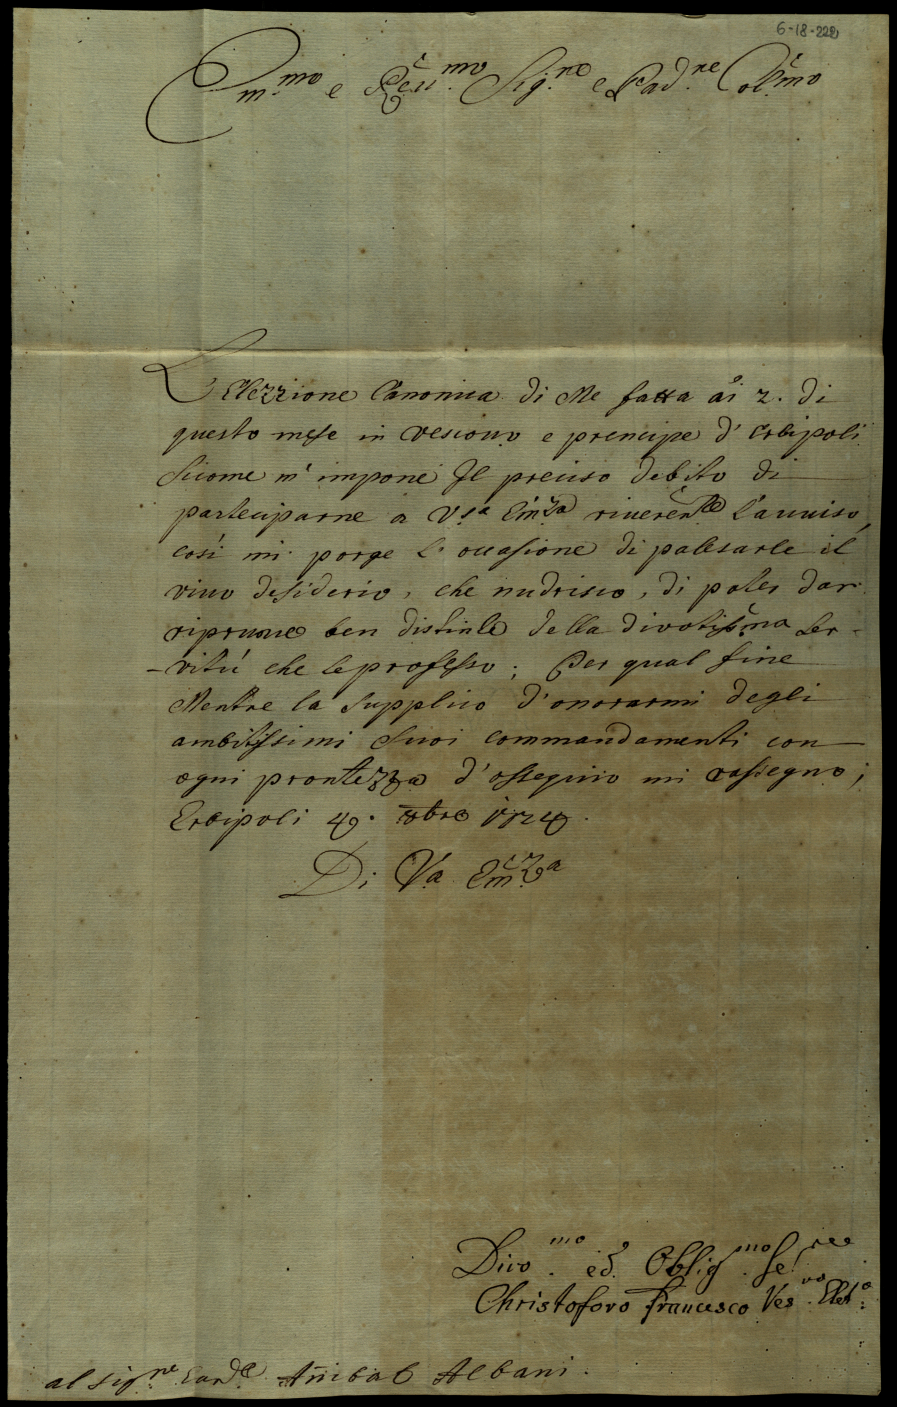 6-18-222
Em.mo e Reu.mo Sig.re e Pad.ne Col.mo
L'Elezzione Canonica di Me fatta ai 2. di
questo mese in vescouo e prencipe d'Erbipoli
Sicome m'impone Il preciso debito di
parteciparne a V.ra Em.za riuerente l'auuiso,
così mi porge l'occasione di palesarle il
viuo desiderio, che nudrisco, di poter dar
ripruoue ben distinte della divotissima Ser-
-vitú che le professo; Per qual fine
Mentre la supplico d'onorarmi degli
ambitissimi suoi commandamenti con
ogni prontezza d'ossequio mi rassegno;
Erbipoli 4. 8bre 1724.
Di V.a Em.za
Divo.mo ed Oblig.mo Se.re
Christoforo Francesco Ves.vo Elet.o
al Sig.re Card.le Anibal Albani.